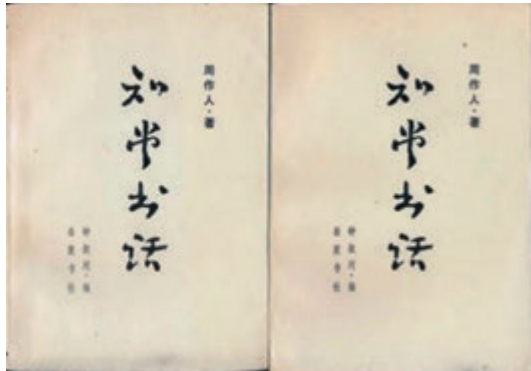 周作人·著
知堂书话
钟叔河·编
岳麓书社
周作人·著
知堂书话
钟叔河·编
岳麓书社